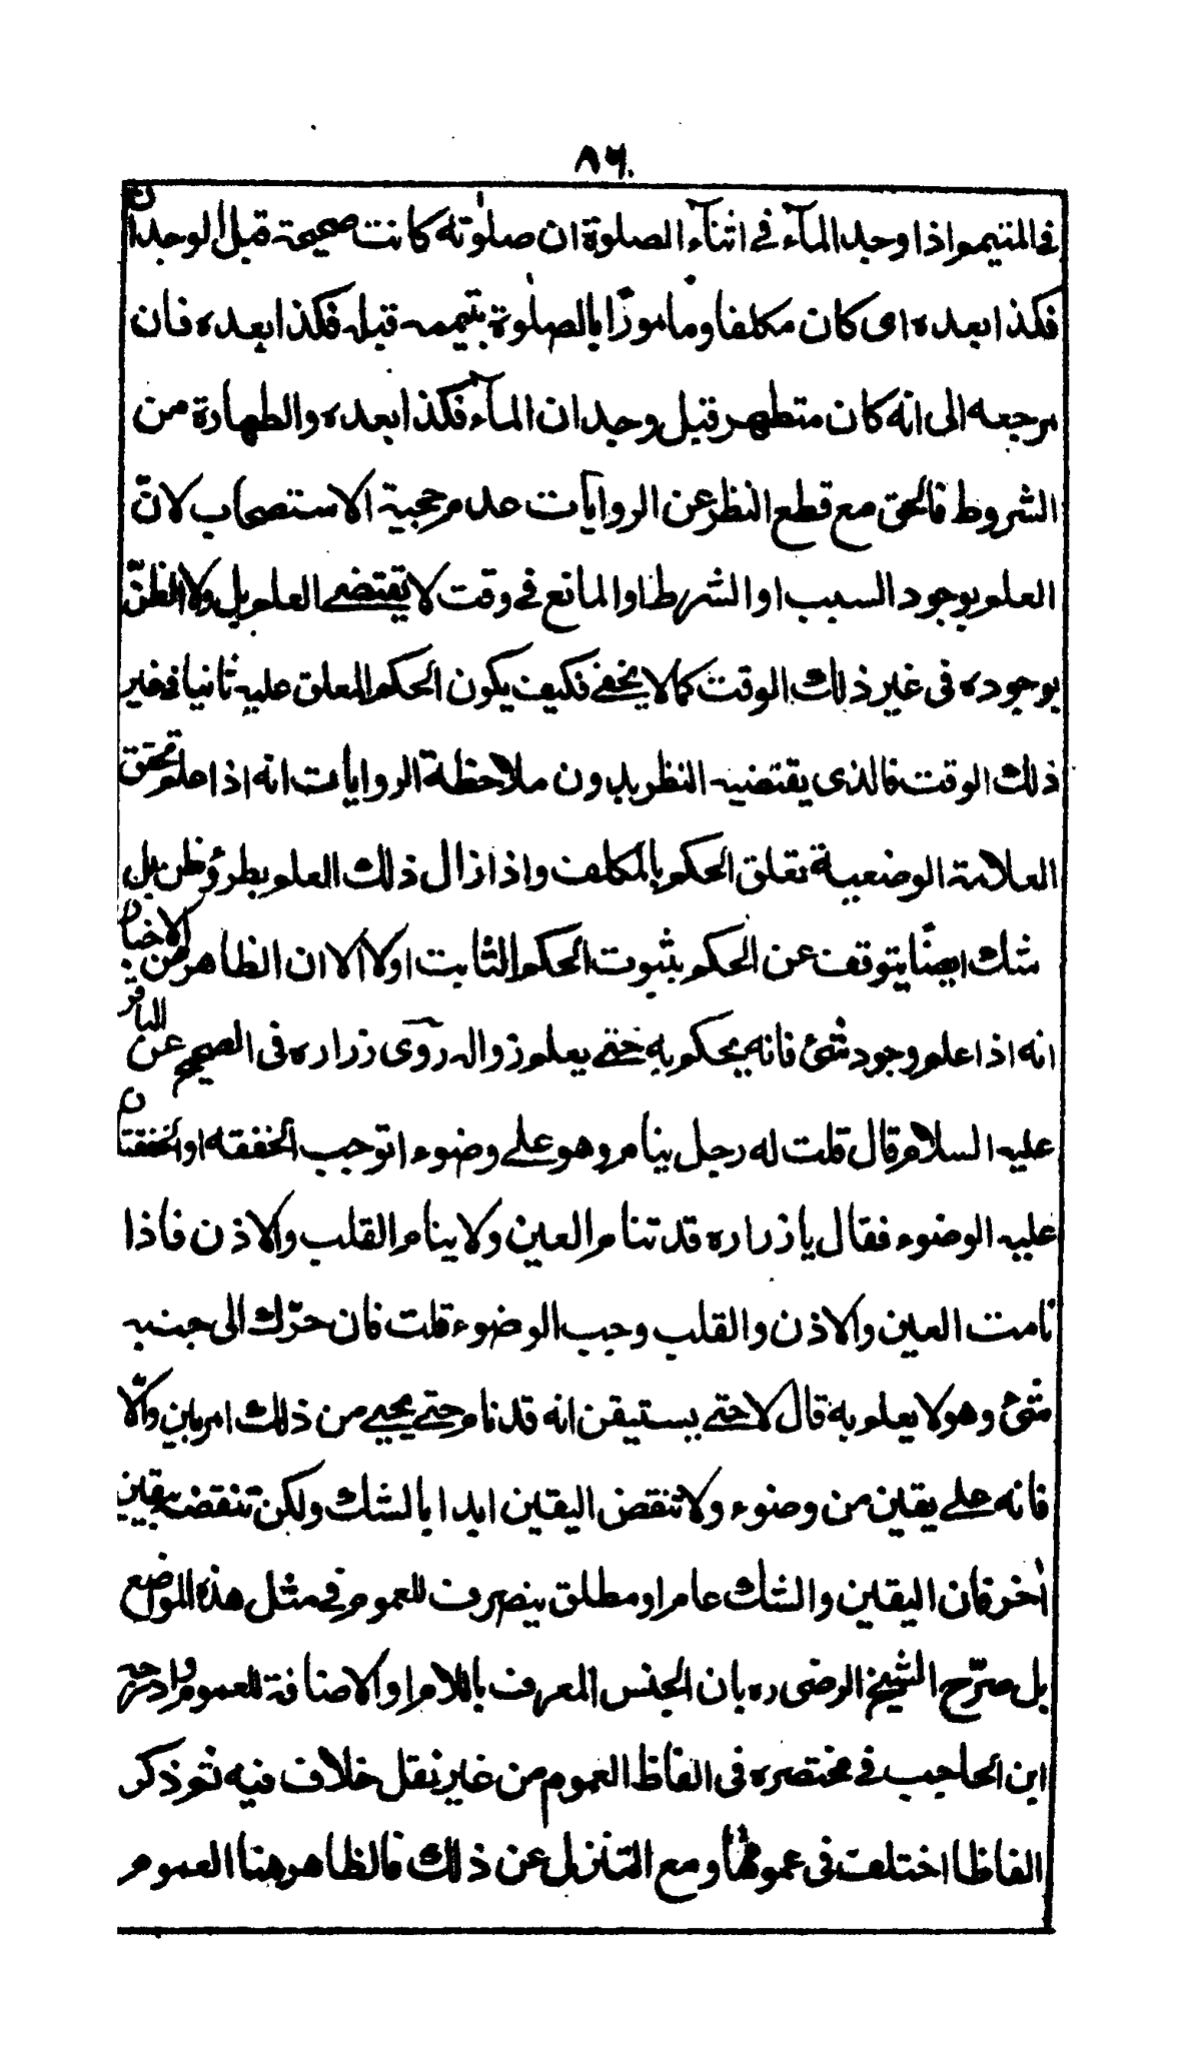 ٨٦
فى المتيمم اذا وجد المآء فى اثنآء الصلوة ان صلوٰته كانت صحيحة قبل الوجدان
فكذا بعده اى كان مكلفا ومأمورًا بالصلوٰة بتيممه قبله فكذا بعده فان
مرجعه الى انه كان متطهر قبل وجدان المآء فكذا بعده والطهارة من
الشروط فالحق مع قطع النظر عن الروايات عدم حجية الاستصحاب لانّ
العلم بوجود السبب او الشرط او المانع فى وقت لا يقتضى العلم بل ولا الظنّ
بوجوده فى غير ذلك الوقت كما لا يخفى فكيف يكون الحكم المعلق عليه ثانيا فى غير
ذلك الوقت فالذى يقتضيه النظر بدون ملاحظة الروايات انه اذا علم تحقق
العلامة الوضعية تعلق الحكم بالمكلف واذا زال ذلك العلم بطرؤ ظن بل
شك ايضًا يتوقف عن الحكم بثبوت الحكم الثابت اولا الا ان الظاهر من الاخبار
انه اذا علم وجود شئ فانه يحكم به حتى يعلم زواله روى زراره فى الصحيح عن الباقر
عليه السلام قال قلت له رجل ينام وهو على وضوء اتوجب الخفقه او الخفقتان
عليه الوضوء فقال يا زراره قد تنام العين ولا ينام القلب والاذن فاذا
نامت العين والاذن والقلب وجب الوضوء قلت فان حرّك الى جنبه
شئ وهو لا يعلم به قال لا حتى يستيقن انه قد نام حتى يجيى من ذلك امر بين والّا
فانه على يقين من وضوء ولا تنقض اليقين ابدا بالشك ولكن تنقضه بيقين
اٰخر فان اليقين والشك عام او مطلق ينصرف للعموم فى مثل هذه المواضع
بل صرّح الشيخ الرضى ره بان الجنس المعرف باللام او الاضافة للعموم وادرجه
ابن الحاجب فى مختصره فى الفاظ العموم من غير نقل خلاف فيه ثم ذكر
الفاظا اختلف فى عمومها ومع التنزل عن ذلك فالظاهر هنا العموم